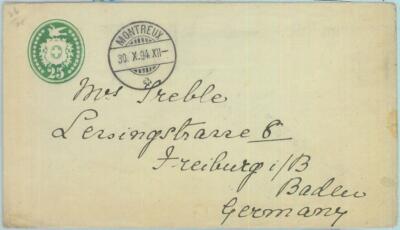 25
MONTREUX
30. X. 94. XII–
Mrs Treble
Lessingstrasse 6
Freiburg i/B
Baden
Germany